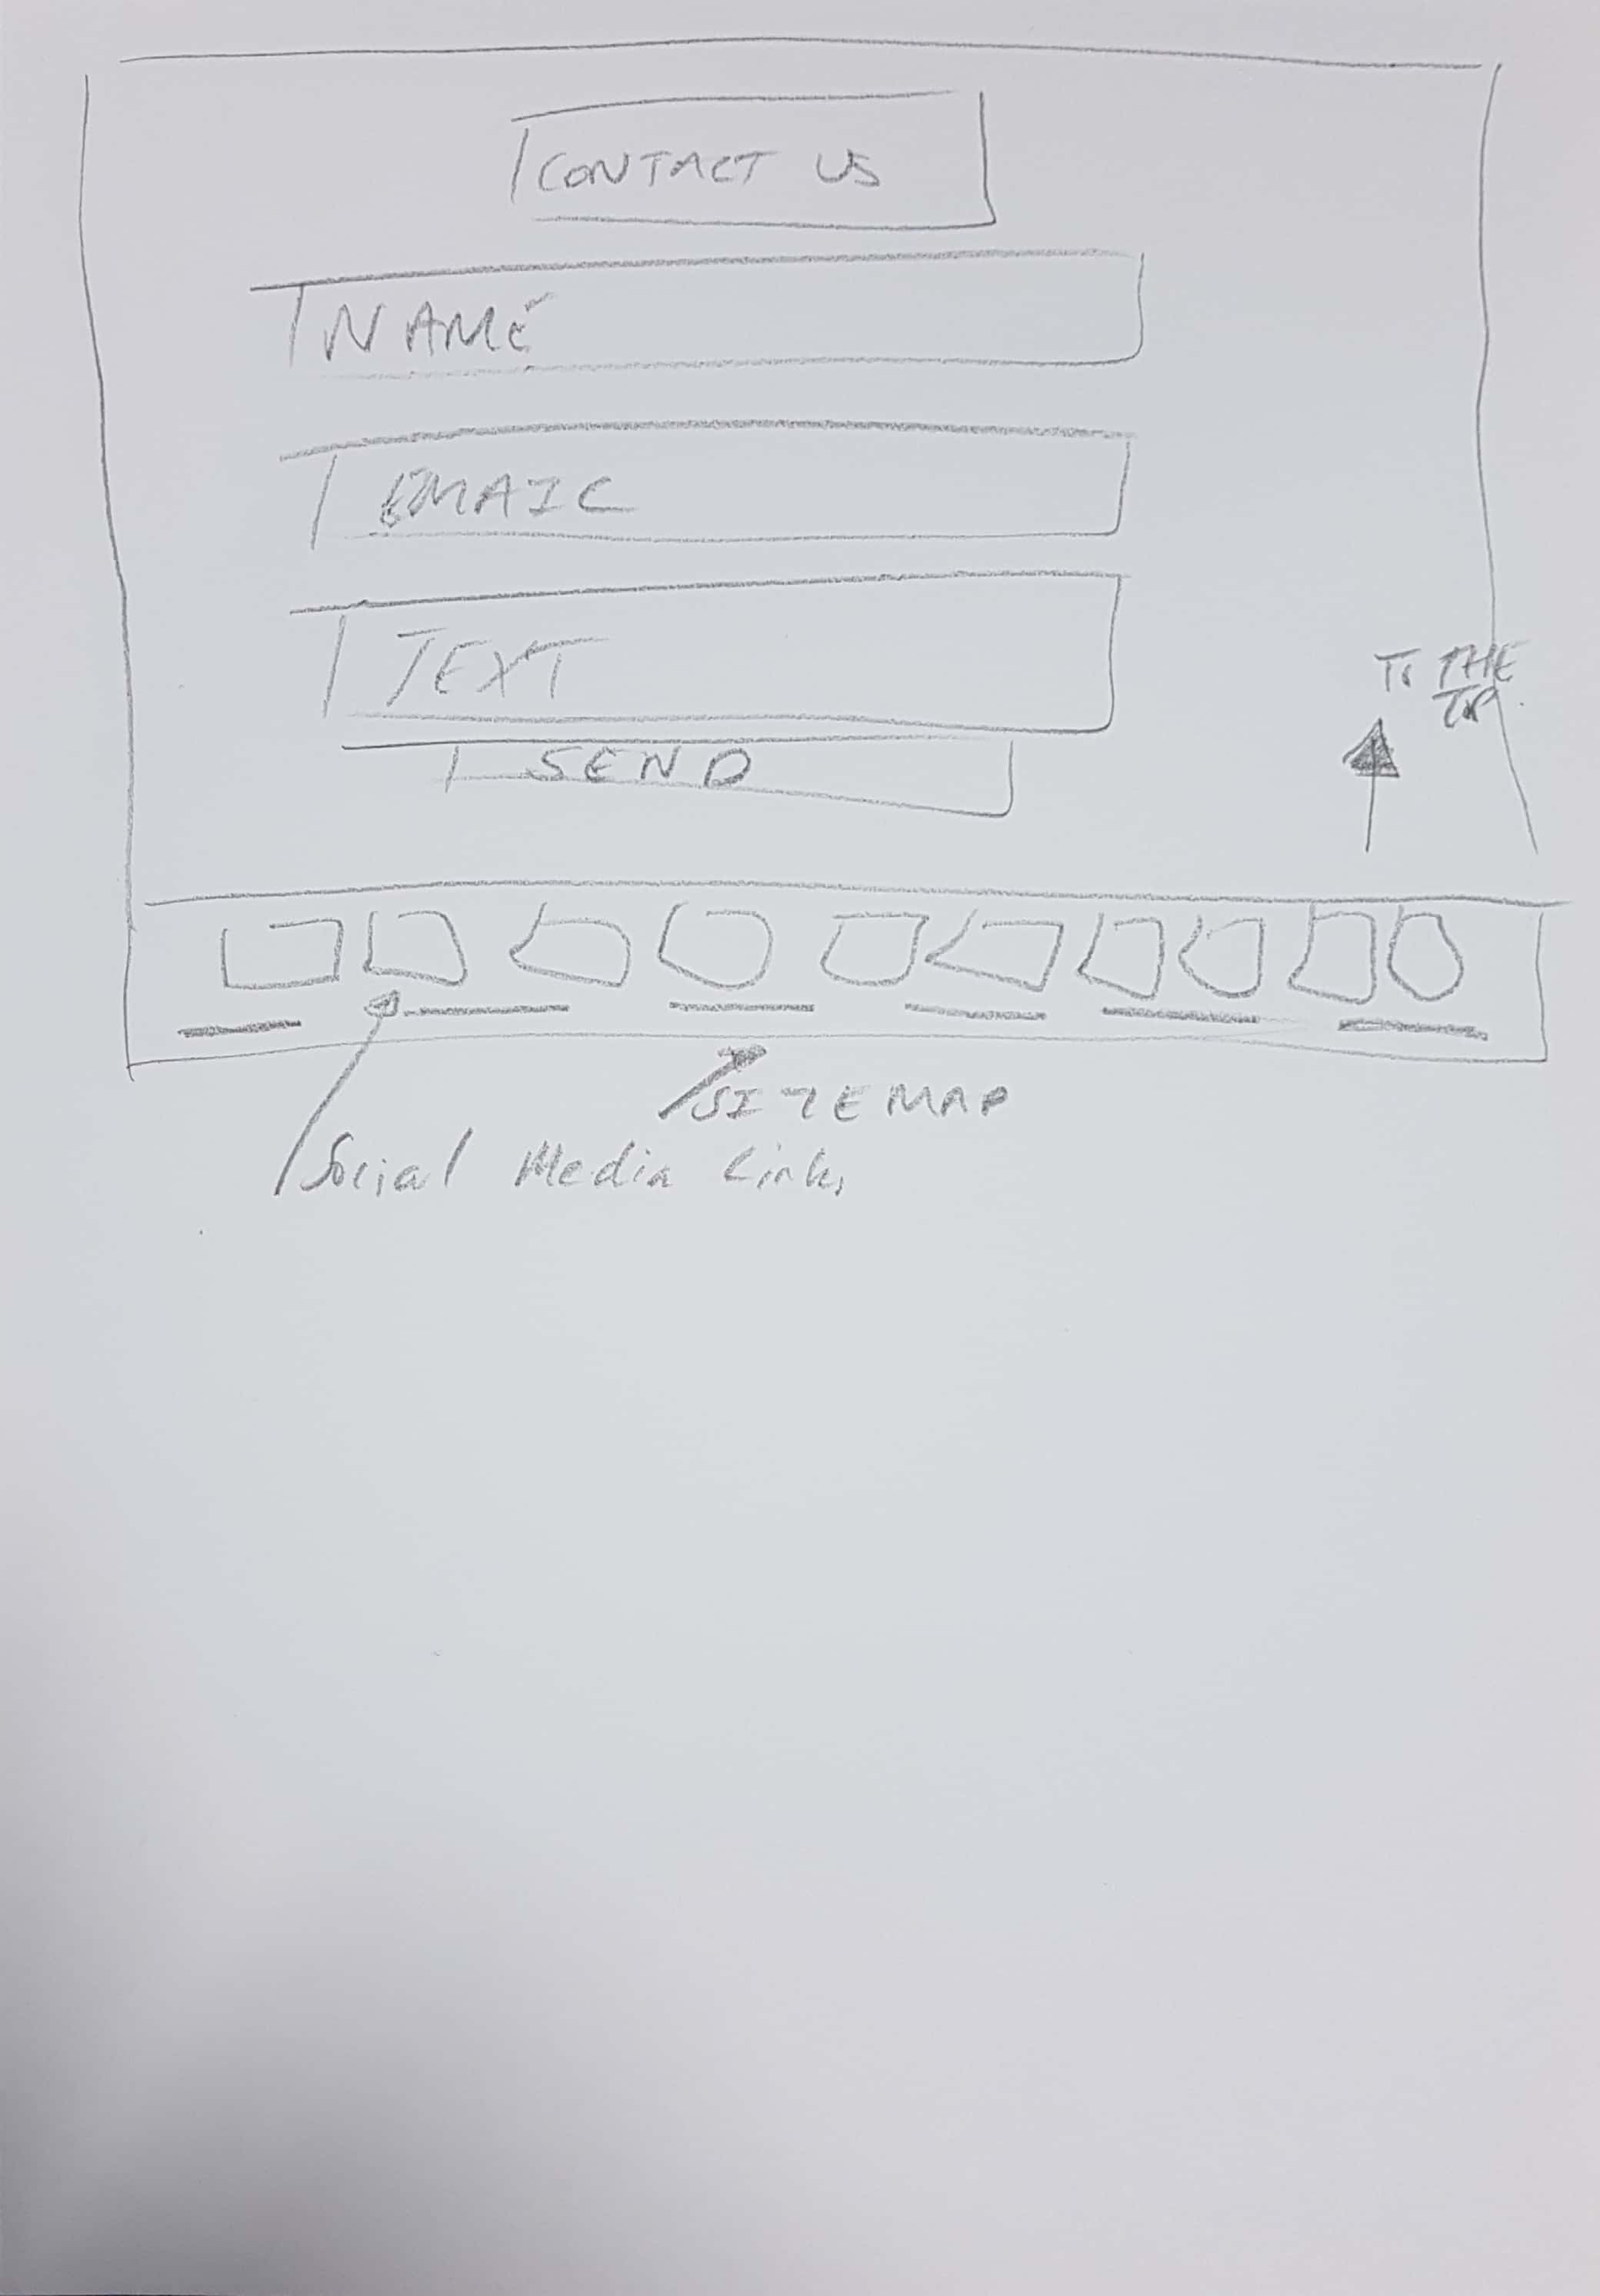 CONTACT US
NAME
EMAIL
TEXT
TO THE
TOP.
SEND
SITEMAP
Social Media Links